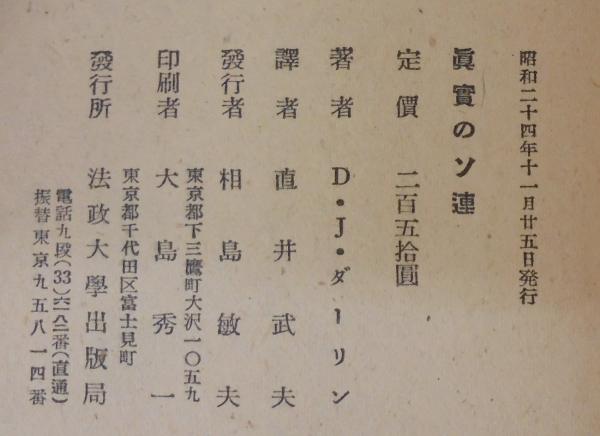 昭和二十四年十一月廿五日発行
眞實のソ連
定價 二百五拾圓
著者 D・J・ダーリン
譯者 直井武夫
發行者 相島敏夫
東京都下三鷹町大沢一〇五九
印刷者 大島秀一
東京都千代田区富士見町
發行所 法政大學出版局
電話九段(33)六一八二番(直通)
振替東京九五八一四番